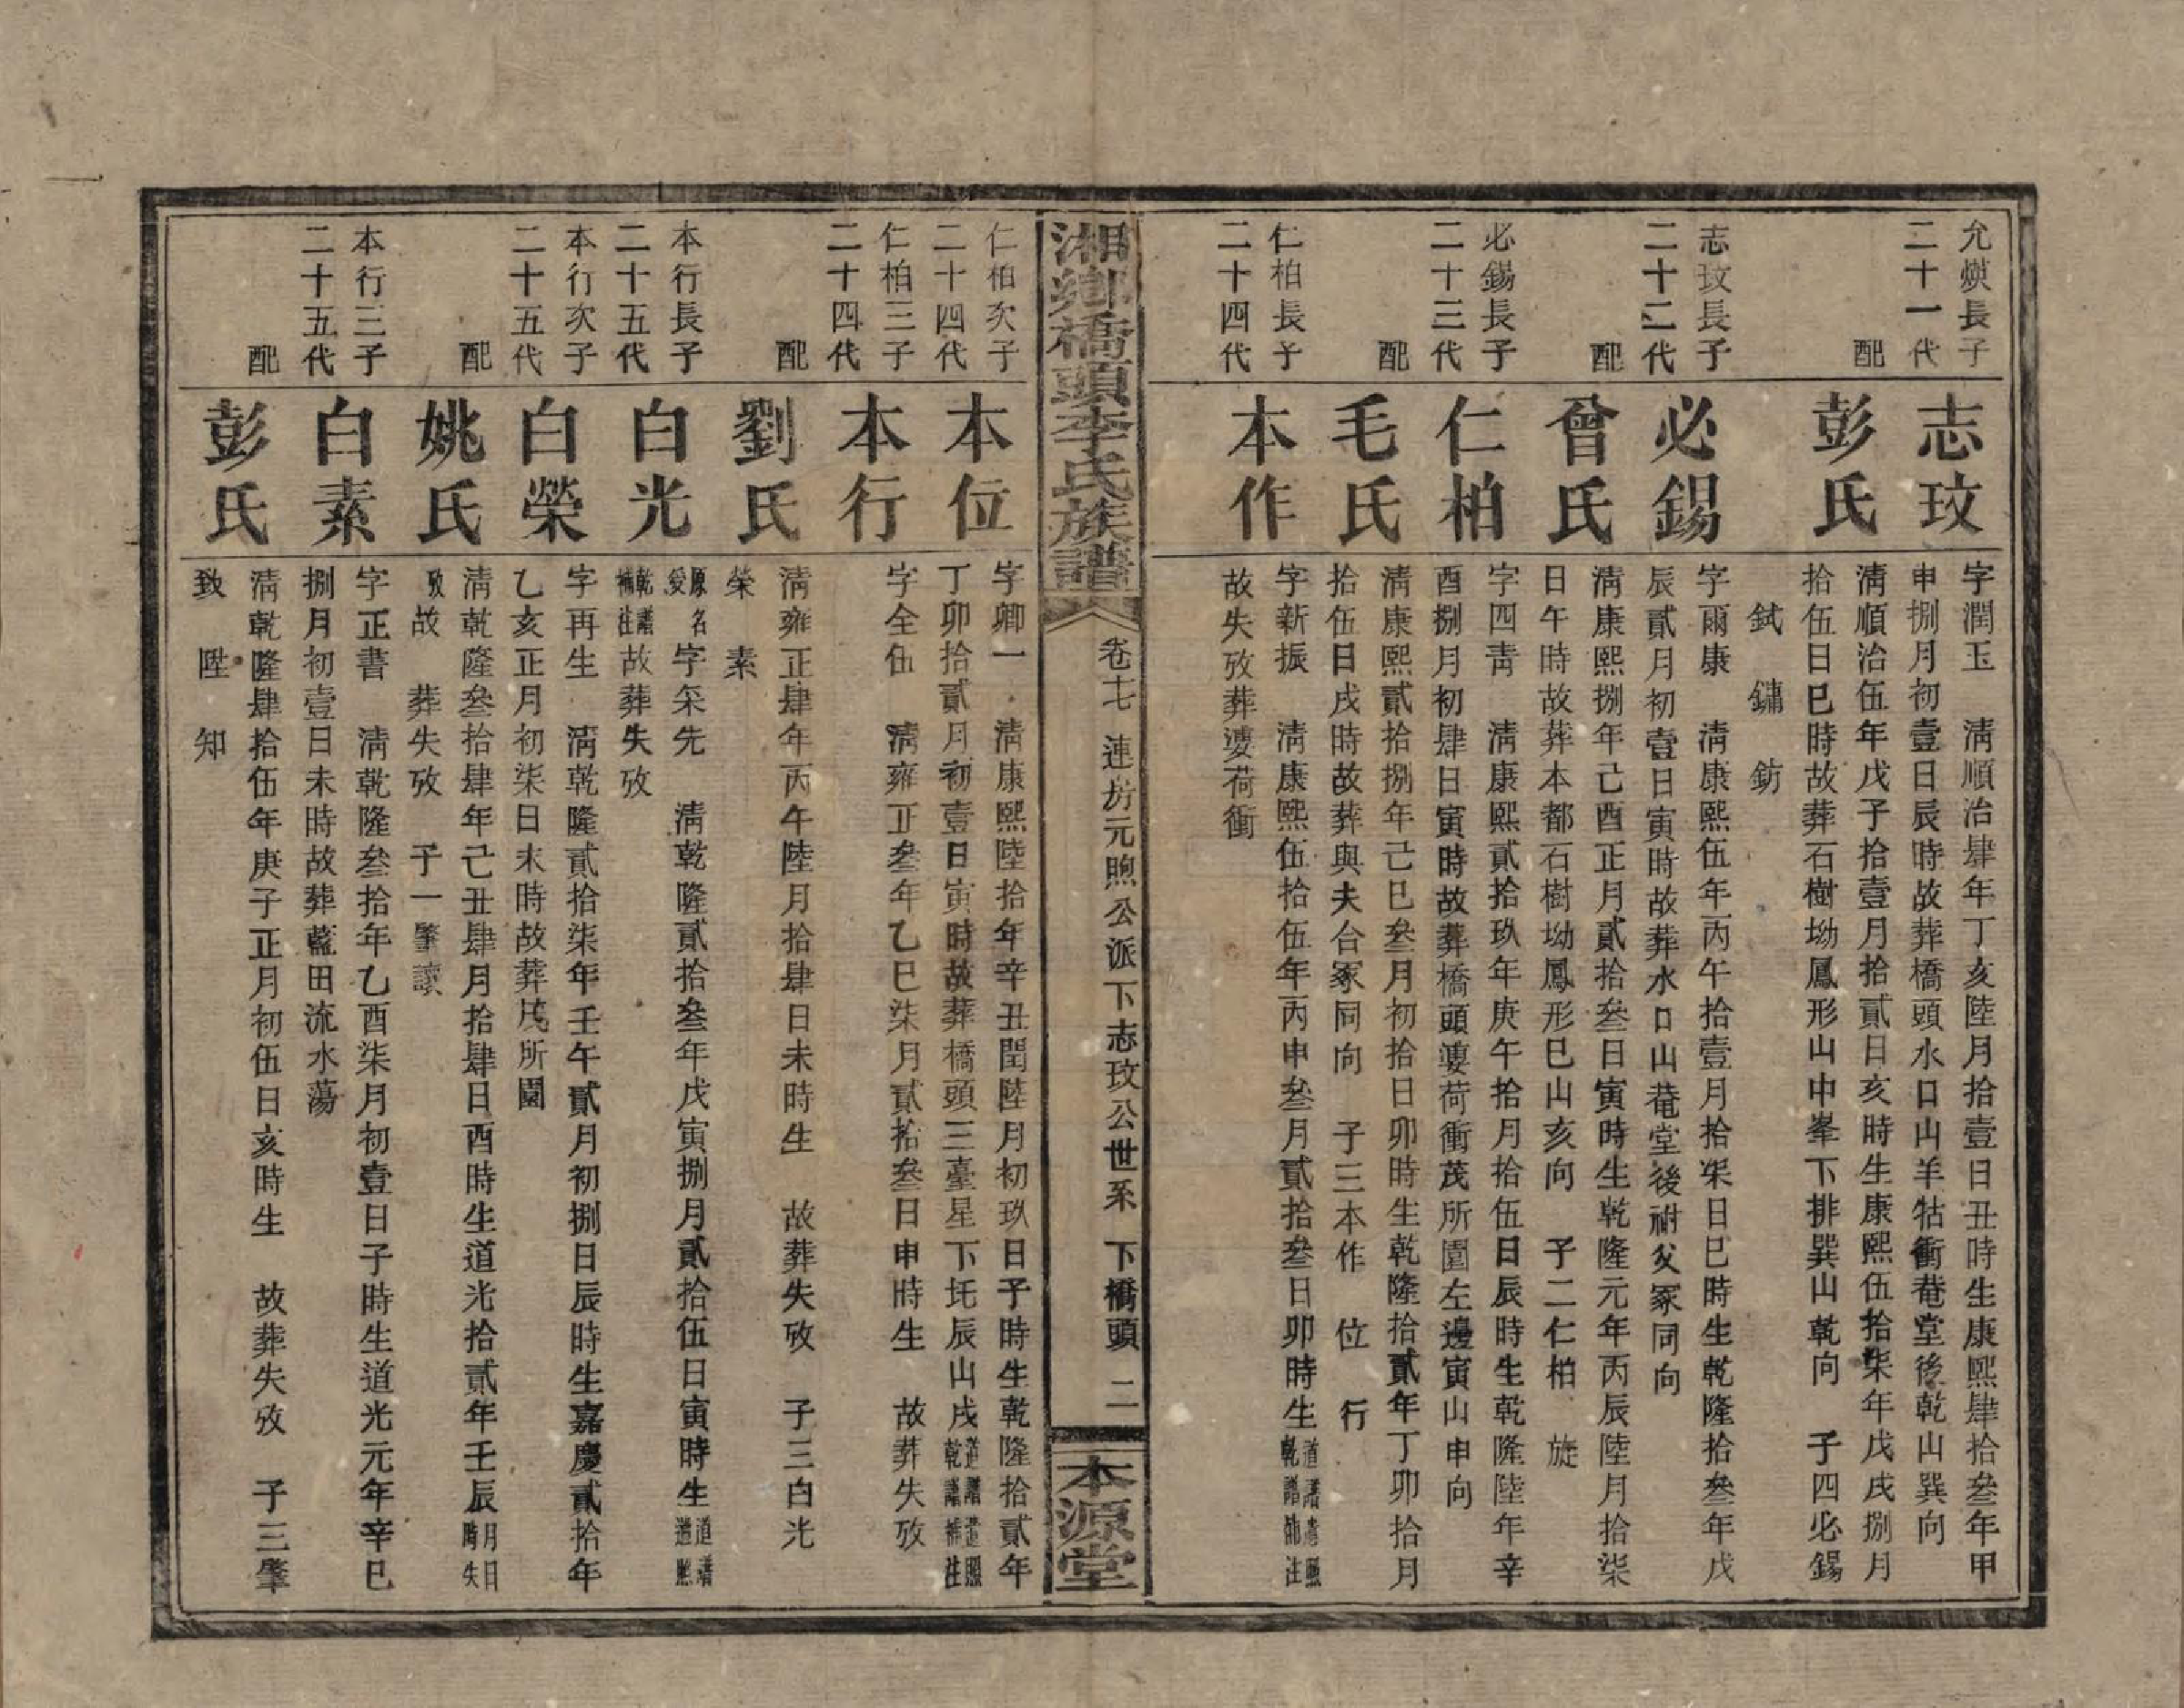 允煐長子
二十一代
志玟
字潤玉　清順治肆年丁亥陸月拾壹日丑時生康熙肆拾叁年甲
申捌月初壹日辰時故葬橋頭水口山羊牯衝菴堂後乾山巽向
配
彭氏
清順治伍年戊子拾壹月拾貳日亥時生康熙伍拾柒年戊戌捌月
拾伍日巳時故葬石樹坳鳳形山中峯下排巽山乾向　子四必錫
　鉽　鏽　鈁
志玟長子
二十二代
必錫
字爾康　清康熙伍年丙午拾壹月拾柒日巳時生乾隆拾叁年戊
辰貳月初壹日寅時故葬水口山菴堂後祔父冢同向
配
曾氏
清康熙捌年己酉正月貳拾叁日寅時生乾隆元年丙辰陸月拾柒
日午時故葬本都石樹坳鳳形巳山亥向　子二仁柏　旋
必錫長子
二十三代
仁柏
字四青　清康熙貳拾玖年庚午拾月拾伍日辰時生乾隆陸年辛
酉捌月初肆日寅時故葬橋頭簍荷衝茂所園左邊寅山申向
配
毛氏
清康熙貳拾捌年己巳叁月初拾日卯時生乾隆拾貳年丁卯拾月
拾伍日戌時故葬與夫合冢同向　子三本作　位　行
仁柏長子
二十四代
本作
字新振　清康熙伍拾伍年丙申叁月貳拾叁日卯時生道譜遵照乾譜補注
故失攷葬簍荷衝
湘鄉橋頭李氏族譜
卷十七　連房元煦公派下志玟公世系　下橋頭　二
本源堂
仁柏次子
二十四代
本位
字卿一　清康熙陸拾年辛丑閏陸月初玖日子時生乾隆拾貳年
丁卯拾貳月初壹日寅時故葬橋頭三臺星下圫辰山戌道譜遵照乾譜補注
仁柏三子
二十四代
本行
字全伍　清雍正叁年乙巳柒月貳拾叁日申時生　故葬失攷
配
劉氏
清雍正肆年丙午陸月拾肆日未時生　故葬失攷　子三白光
榮　素
本行長子
二十五代
白光
原名愛　字采先　清乾隆貳拾叁年戊寅捌月貳拾伍日寅時生道譜遵照
乾譜補注故葬失攷
本行次子
二十五代
白榮
字再生　清乾隆貳拾柒年壬午貳月初捌日辰時生嘉慶貳拾年
乙亥正月初柒日未時故葬茂所園
配
姚氏
清乾隆叁拾肆年己丑肆月拾肆日酉時生道光拾貳年壬辰月日時失
攷故　葬失攷　子一肇讀
本行三子
二十五代
白素
字正書　清乾隆叁拾年乙酉柒月初壹日子時生道光元年辛巳
捌月初壹日未時故葬藍田流水蕩
配
彭氏
清乾隆肆拾伍年庚子正月初伍日亥時生　故葬失攷　子三肇
致　陞　知